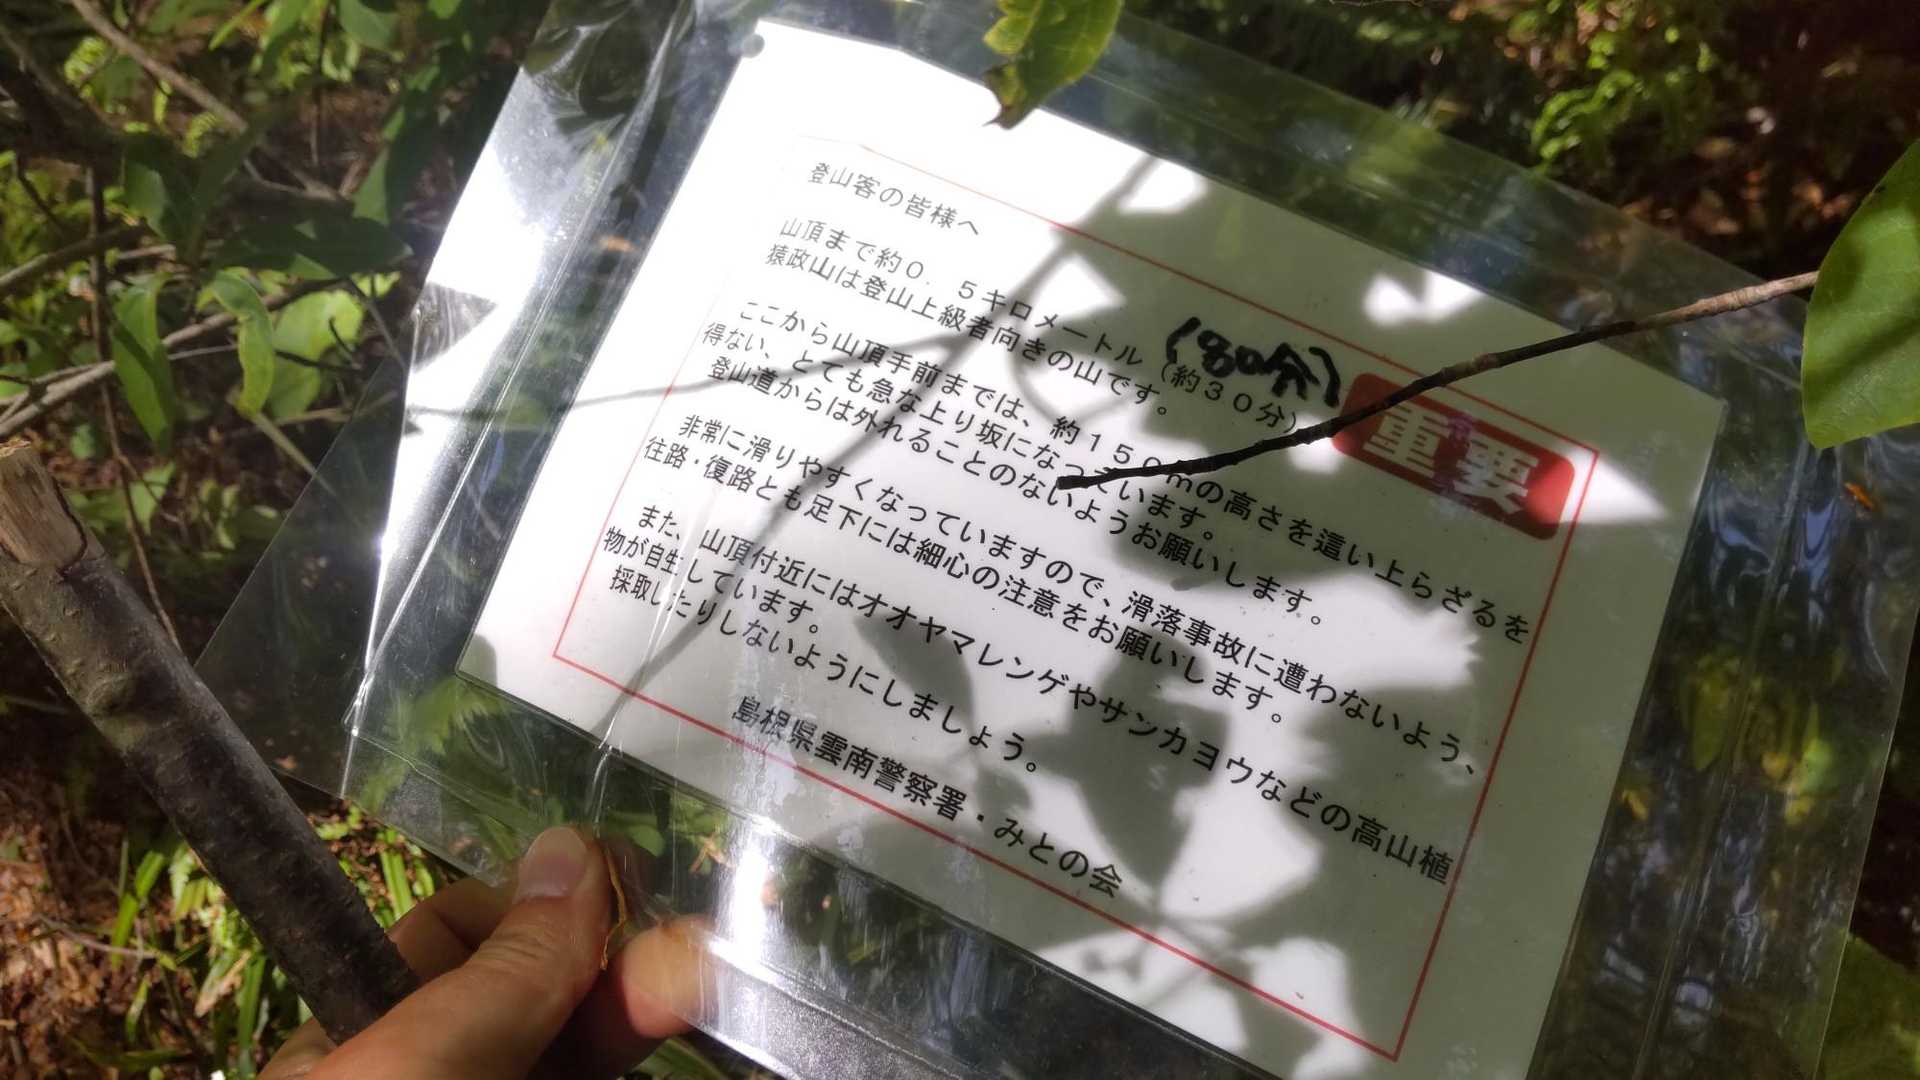 登山客の皆様へ
山頂まで約０．５キロメートル（約３０分）
(80分)
重要
猿政山は登山上級者向きの山です。
ここから山頂手前までは、約１５０ｍの高さを這い上らざるを
得ない、とても急な上り坂になっています。
登山道からは外れることのないようお願いします。
非常に滑りやすくなっていますので、滑落事故に遭わないよう、
往路・復路とも足下には細心の注意をお願いします。
また、山頂付近にはオオヤマレンゲやサンカヨウなどの高山植
物が自生しています。
採取したりしないようにしましょう。
島根県雲南警察署・みとの会